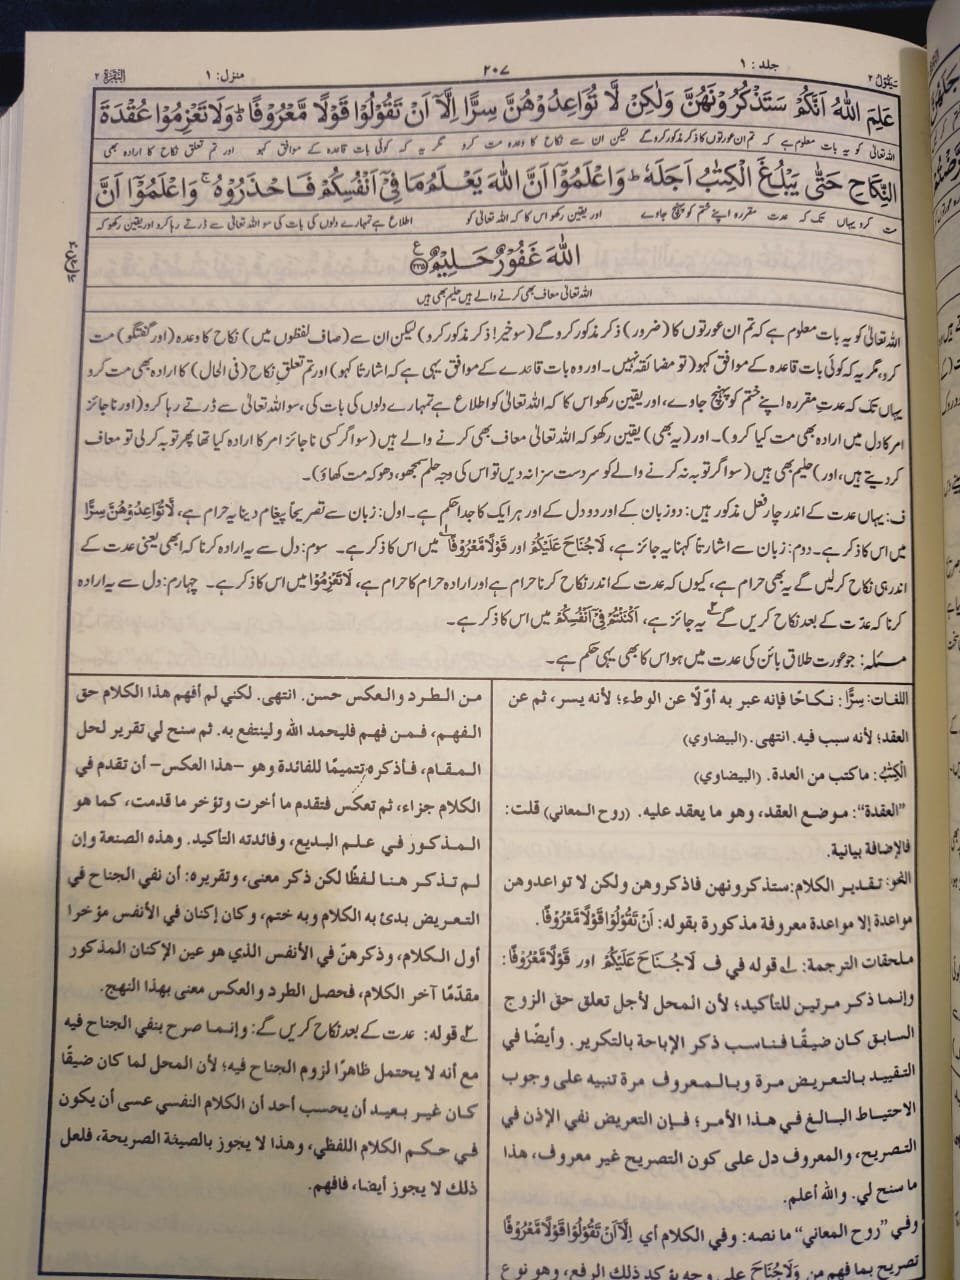 سَیَقُوْلُ ٢
جلد: ١
٢٠٧
منزل: ١
البَقَرَة ٢
عَلِمَ اللّٰهُ اَنَّكُمْ سَتَذْكُرُوْنَهُنَّ وَلٰكِنْ لَّا تُوَاعِدُوْهُنَّ سِرًّا اِلَّاۤ اَنْ تَقُوْلُوْا قَوْلًا مَّعْرُوْفًا ؕ وَلَا تَعْزِمُوْا عُقْدَةَ
اللہ تعالیٰ کو یہ بات معلوم ہے کہ تم ان عورتوں کا ذکر مذکور کروگے لیکن ان سے نکاح کا وعدہ مت کرو مگر یہ کہ کوئی بات قاعدہ کے موافق کہو اور تم تعلق نکاح کا ارادہ بھی
النِّكَاحِ حَتّٰى يَبْلُغَ الْكِتٰبُ اَجَلَهٗ ؕ وَاعْلَمُوْۤا اَنَّ اللّٰهَ يَعْلَمُ مَا فِيْۤ اَنْفُسِكُمْ فَاحْذَرُوْهُ ۚ وَاعْلَمُوْۤا اَنَّ
مت کرو یہاں تک کہ عدت مقررہ اپنے ختم کو پہنچ جاوے اور یقین رکھو اس کا کہ اللہ تعالیٰ کو اطلاع ہے تمہارے دلوں کی بات کی سو اللہ تعالیٰ سے ڈرتے رہا کرو اور یقین رکھو کہ
اللّٰهَ غَفُوْرٌ حَلِيْمٌ ﴿٢٣٥﴾ ع
اللہ تعالیٰ معاف بھی کرنے والے ہیں حلیم بھی ہیں
اللہ تعالیٰ کو یہ بات معلوم ہے کہ تم ان عورتوں کا (ضرور) ذکر مذکور کروگے (سو خیر! ذکر مذکور کرو) لیکن ان سے (صاف لفظوں میں) نکاح کا وعدہ (اور گفتگو) مت
کرو، مگر یہ کہ کوئی بات قاعدہ کے موافق کہو (تو مضائقہ نہیں۔ اور وہ بات قاعدے کے موافق یہی ہے کہ اشارتا کہو) اور تم تعلقِ نکاح (فی الحال) کا ارادہ بھی مت کرو
یہاں تک کہ عدتِ مقررہ اپنے ختم کو پہنچ جاوے، اور یقین رکھو اس کا کہ اللہ تعالیٰ کو اطلاع ہے تمہارے دلوں کی بات کی، سو اللہ تعالیٰ سے ڈرتے رہا کرو (اور ناجائز
امر کا دل میں ارادہ بھی مت کیا کرو)۔ اور (یہ بھی) یقین رکھو کہ اللہ تعالیٰ معاف بھی کرنے والے ہیں (سو اگر کسی ناجائز امر کا ارادہ کیا تھا پھر توبہ کرلی تو معاف
کردیتے ہیں، اور) حلیم بھی ہیں (سو اگر توبہ نہ کرنے والے کو سردست سزا نہ دیں تو اس کی وجہ حلم سمجھو، دھوکہ مت کھاؤ)۔
ف: یہاں عدت کے اندر چار فعل مذکور ہیں: دو زبان کے اور دو دل کے اور ہر ایک کا جدا حکم ہے۔ اول: زبان سے تصریحاً پیغام دینا یہ حرام ہے، لَّا تُوَاعِدُوْهُنَّ سِرًّا
میں اس کا ذکر ہے۔ دوم: زبان سے اشارتاً کہنا یہ جائز ہے، لَا جُنَاحَ عَلَيْكُمْ اور قَوْلًا مَّعْرُوْفًا ۱؎ میں اس کا ذکر ہے۔ سوم: دل سے یہ ارادہ کرنا کہ ابھی یعنی عدت کے
اندر ہی نکاح کرلیں گے یہ بھی حرام ہے، کیوں کہ عدت کے اندر نکاح کرنا حرام ہے اور ارادہ حرام کا حرام ہے، لَا تَعْزِمُوْا میں اس کا ذکر ہے۔ چہارم: دل سے یہ ارادہ
کرنا کہ عدّت کے بعد نکاح کریں گے ۲؎ یہ جائز ہے، اَكْنَنْتُمْ فِيْۤ اَنْفُسِكُمْ میں اس کا ذکر ہے۔
مسئلہ: جو عورت طلاق بائن کی عدت میں ہو اس کا بھی یہی حکم ہے۔
اللغات: سِرًّا: نكاحًا فإنه عبر به أوّلًا عن الوطء؛ لأنه يسر، ثم عن
العقد؛ لأنه سبب فيه. انتهى. (البيضاوي)
الْكِتٰبُ: ماكتب من العدة. (البيضاوي)
”العقدة“: موضع العقد، وهو ما يعقد عليه. (روح المعاني) قلت:
فالإضافة بيانية.
النحو: تقدير الكلام: ستذكرونهن فاذكروهن ولكن لا تواعدوهن
مواعدة إلا مواعدة معروفة مذكورة بقوله: اَنْ تَقُوْلُوْا قَوْلًا مَّعْرُوْفًا.
ملحقات الترجمة: ۱؎ قوله في ف لَا جُنَاحَ عَلَيْكُمْ اور قَوْلًا مَّعْرُوْفًا:
وإنما ذكر مرتين للتأكيد؛ لأن المحل لأجل تعلق حق الزوج
السابق كان ضيقًا فناسب ذكر الإباحة بالتكرير. وأيضًا في
التقييد بالتعريض مرة وبالمعروف مرة تنبيه على وجوب
الاحتياط البالغ في هذا الأمر؛ فإن التعريض نفي الإذن في
التصريح، والمعروف دل على كون التصريح غير معروف، هذا
ما سنح لي. والله أعلم.
وفي ”روح المعاني“ ما نصه: وفي الكلام أي اِلَّاۤ اَنْ تَقُوْلُوْا قَوْلًا مَّعْرُوْفًا
تصريح بما فهم من وَلَا جُنَاحَ على وجه يؤكد ذلك الرفع، وهو نوع
من الطرد والعكس حسن. انتهى. لكني لم أفهم هذا الكلام حق
الفهم، فمن فهم فليحمد الله ولينتفع به. ثم سنح لي تقرير لحل
المقام، فأذكره تتميمًا للفائدة وهو –هذا العكس– أن تقدم في
الكلام جزاء، ثم تعكس فتقدم ما أخرت وتؤخر ما قدمت، كما هو
المذكور في علم البديع، وفائدته التأكيد. وهذه الصنعة وإن
لم تذكر هنا لفظًا لكن ذكر معنى، وتقريره: أن نفي الجناح في
التعريض بدئ به الكلام وبه ختم، وكان إكنان في الأنفس مؤخرا
أول الكلام، وذكرهنّ في الأنفس الذي هو عين الإكنان المذكور
مقدّمًا آخر الكلام، فحصل الطرد والعكس معنى بهذا النهج.
۲؎ قوله: عدت کے بعد نکاح کریں گے: وإنما صرح بنفي الجناح فيه
مع أنه لا يحتمل ظاهرًا لزوم الجناح فيه؛ لأن المحل لما كان ضيقًا
كان غير بعيد أن يحسب أحد أن الكلام النفسي عسى أن يكون
في حكم الكلام اللفظي، وهذا لا يجوز بالصيغة الصريحة، فلعل
ذلك لا يجوز أيضا، فافهم.